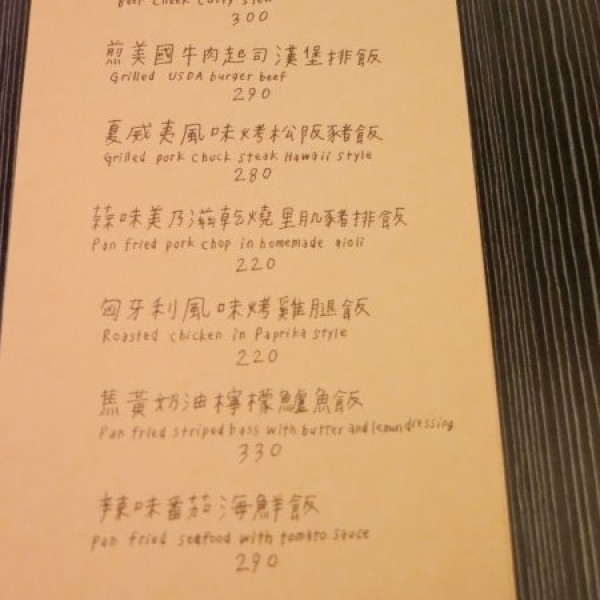 Beef Cheek Curry Stew
300
煎美國牛肉起司漢堡排飯
Grilled USDA burger beef
290
夏威夷風味烤松阪豬飯
Grilled pork chuck steak Hawaii style
280
蒜味美乃滋乾燒里肌豬排飯
Pan fried pork chop in homemade aioli
220
匈牙利風味烤雞腿飯
Roasted chicken in Paprika style
220
焦黃奶油檸檬鱸魚飯
Pan fried striped bass with butter and lemon dressing
330
辣味番茄海鮮飯
Pan fried seafood with tomato sauce
290